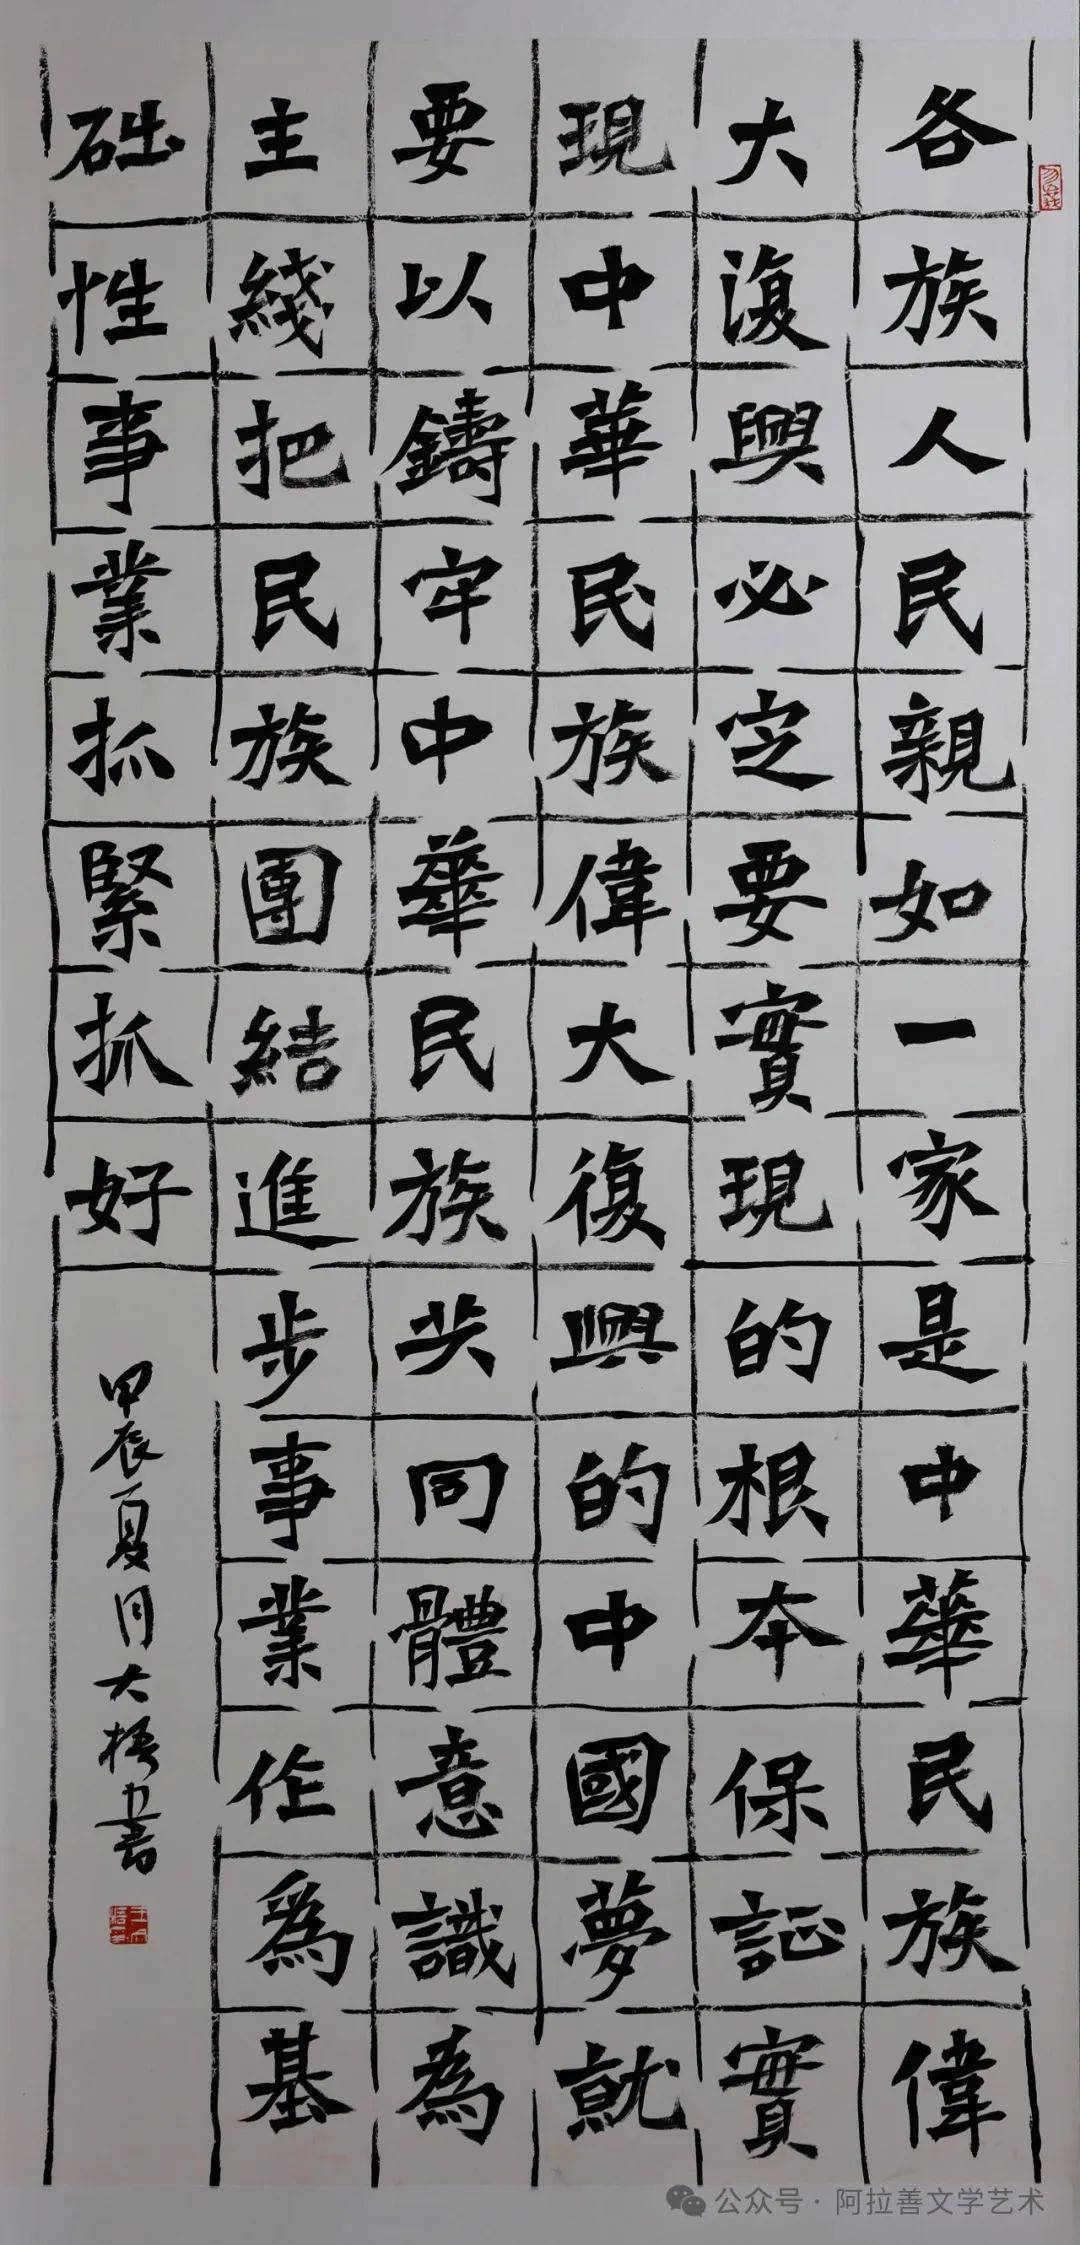 各族人民親如一家是中華民族偉
大復興必定要實現的根本保証實
現中華民族偉大復興的中國夢就
要以鑄牢中華民族共同體意識為
主綫把民族團結進步事業作爲基
础性事業抓緊抓好
甲辰夏月大梧书
公众号·阿拉善文学艺术